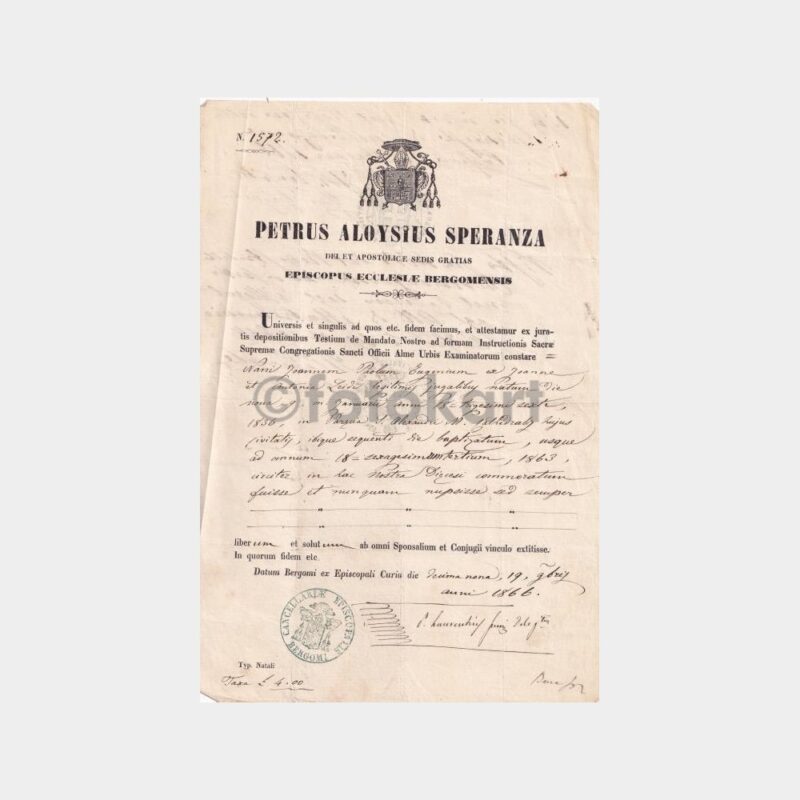 N. 1572.
PETRUS ALOYSIUS SPERANZA
DEI ET APOSTOLICÆ SEDIS GRATIAS
EPISCOPUS ECCLESIÆ BERGOMENSIS
Universis et singulis ad quos etc. fidem facimus, et attestamur ex jura-
tis depositionibus Testium de Mandato Nostro ad formam Instructionis Sacræ
Supremæ Congregationis Sancti Officii Almæ Urbis Examinatorum constare =
Joannem Paolum Eugenium ex Joanne
et Antonia legitimis jugalibus natum die
nona Januarii anni 18 trigesimi sexti,
1836, in hujus
civitatis, ibique sequenti die baptizatum, usque
ad annum 18= sexagesimumtertium, 1863,
circiter in hac Nostra Diœcesi commoratum
fuisse et nunquam nupsisse sed semper
©fotokart
liberum et solutum ab omni Sponsalium et Conjugii vinculo extitisse.
In quorum fidem etc.
Datum Bergomi ex Episcopali Curia die decima nona, 19, 9bris
anni 1866.
CANCELLARIÆ EPISCOPALIS BERGOMI
Typ. Natali
Taxa £ 4.00